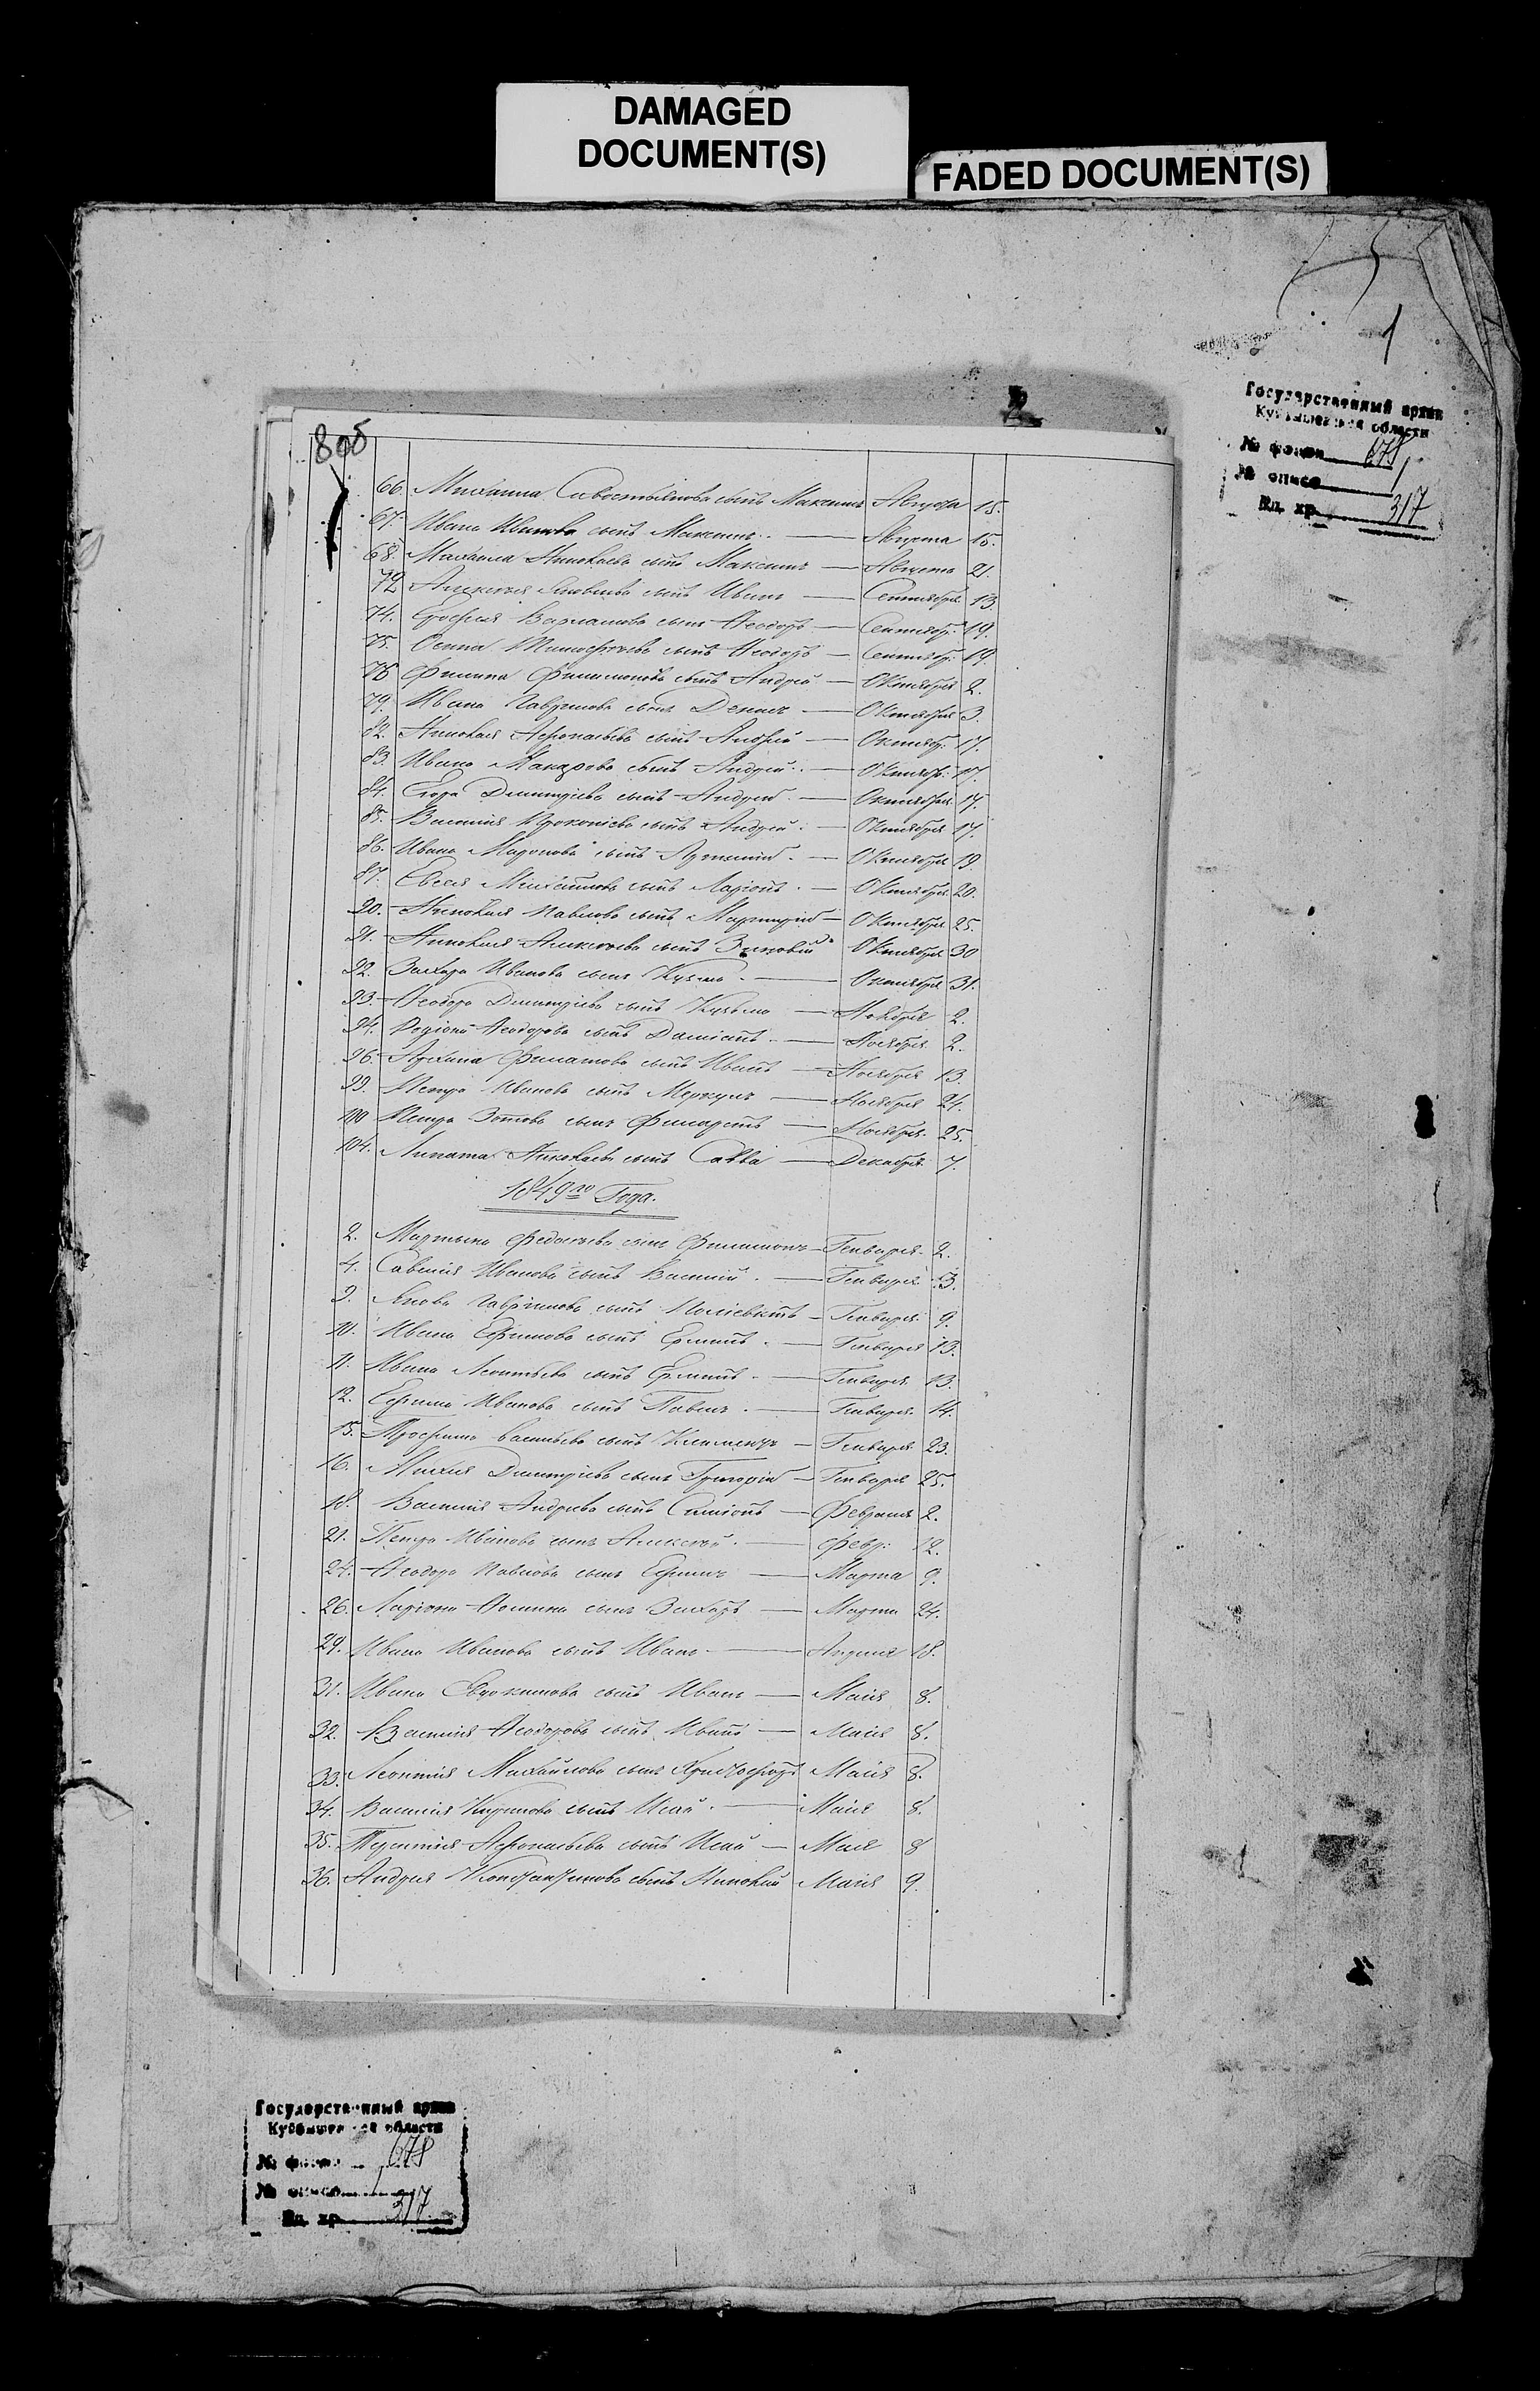 DAMAGED
DOCUMENT(S)
FADED DOCUMENT(S)
1
Государственный архив
Куйбышевской области
№ фонда 678
№ описи 1
Ед. хр. 317
2
806
66. Михаила Савостьянова сынъ Максимъ Августа 15.
67. Ивана Иванова сынъ Максимъ. — Августа 15.
68. Михаила Николаева сынъ Максимъ — Августа 21.
72 Алексея Яковлева сынъ Иванъ — Сентября 13
74. Ерофея Варламова сынъ Ѳеодоръ — Сентябр. 19.
75. Осипа Тимофеева сынъ Ѳеодоръ — Сентябр. 19.
76 Филипа Филимонова сынъ Андрей — Октября 2.
79. Ивана Гаврилова сынъ Денисъ — Октября 3.
82. Николая Афонасьева сынъ Андрей — Октябр. 17.
83. Ивана Макарова сынъ Андрей. — Октябр: 17.
84. Егора Дмитріева сынъ Андрей. — Октября 17.
85. Василія Прокопіева сынъ Андрей. — Октября 17.
86. Ивана сынъ Артемій. — Октября 19.
87. Евсея Михайлова сынъ Ларіонъ. — Октября 20.
90. Николая Павлова сынъ Мартирій — Октября 25.
91. Николая Алексеева сынъ Зиновій Октября 30
92. Захара Иванова сынъ Кузма. — Октября 31.
93. Ѳеодора Дмитріева сынъ Кузьма — Ноября 2.
94. Родіона Ѳеодорова сынъ Даміанъ. — Ноября 2.
96. Архипа Филатова сынъ Иванъ — Ноября 13.
99. Петра Иванова сынъ Меркулъ — Ноября 24.
100 Петра Зотова сынъ Филаретъ — Ноября. 25.
104. Липата Николаева сынъ Савва — Декабря 7.
1849го Года.
2. Мартына Федосеева сынъ Филимонъ — Генваря. 2.
4. Савелія Иванова сынъ Василій. — Генваря 3.
9. Якова Гаврилова сынъ Поліевктъ — Генваря 9.
10. Ивана Ефимова сынъ Ермилъ. — Генваря 13.
11. Ивана Леонтьева сынъ Ермилъ. — Генваря. 13.
12. Ефима Иванова сынъ Павелъ. — Генваря. 14.
15. Трофима Васильева сынъ Климентъ — Генваря 23.
16. Михея Дмитріева сынъ Григорій — Генваря 25.
18. Василія Андреева сынъ Симіонъ — Февраля 2.
21. Петра Иванова сынъ Алексей. — Февр: 12.
24. Ѳеодора Павлова сынъ Ефимъ — Марта 9.
26. Ларіона Ѳомина сынъ Захаръ — Марта 24.
29. Ивана Иванова сынъ Иванъ — Апреля 18.
31. Ивана Евдокимова сынъ Иванъ — Маія 8.
32. Василія Ѳеодорова сынъ Иванъ — Маія 8.
33. Леонтія Михайлова сынъ Христофоръ Маія 8.
34. Василія Кирилова сынъ Исай. — Маія 8.
35. Терентія Афонасьева сынъ Исай — Маія 8
36. Андрея Константинова сынъ Николай Маія 9.
Государственный архив
Куйбышевской области
№ фонда 678
№ описи 1
Ед. хр. 317